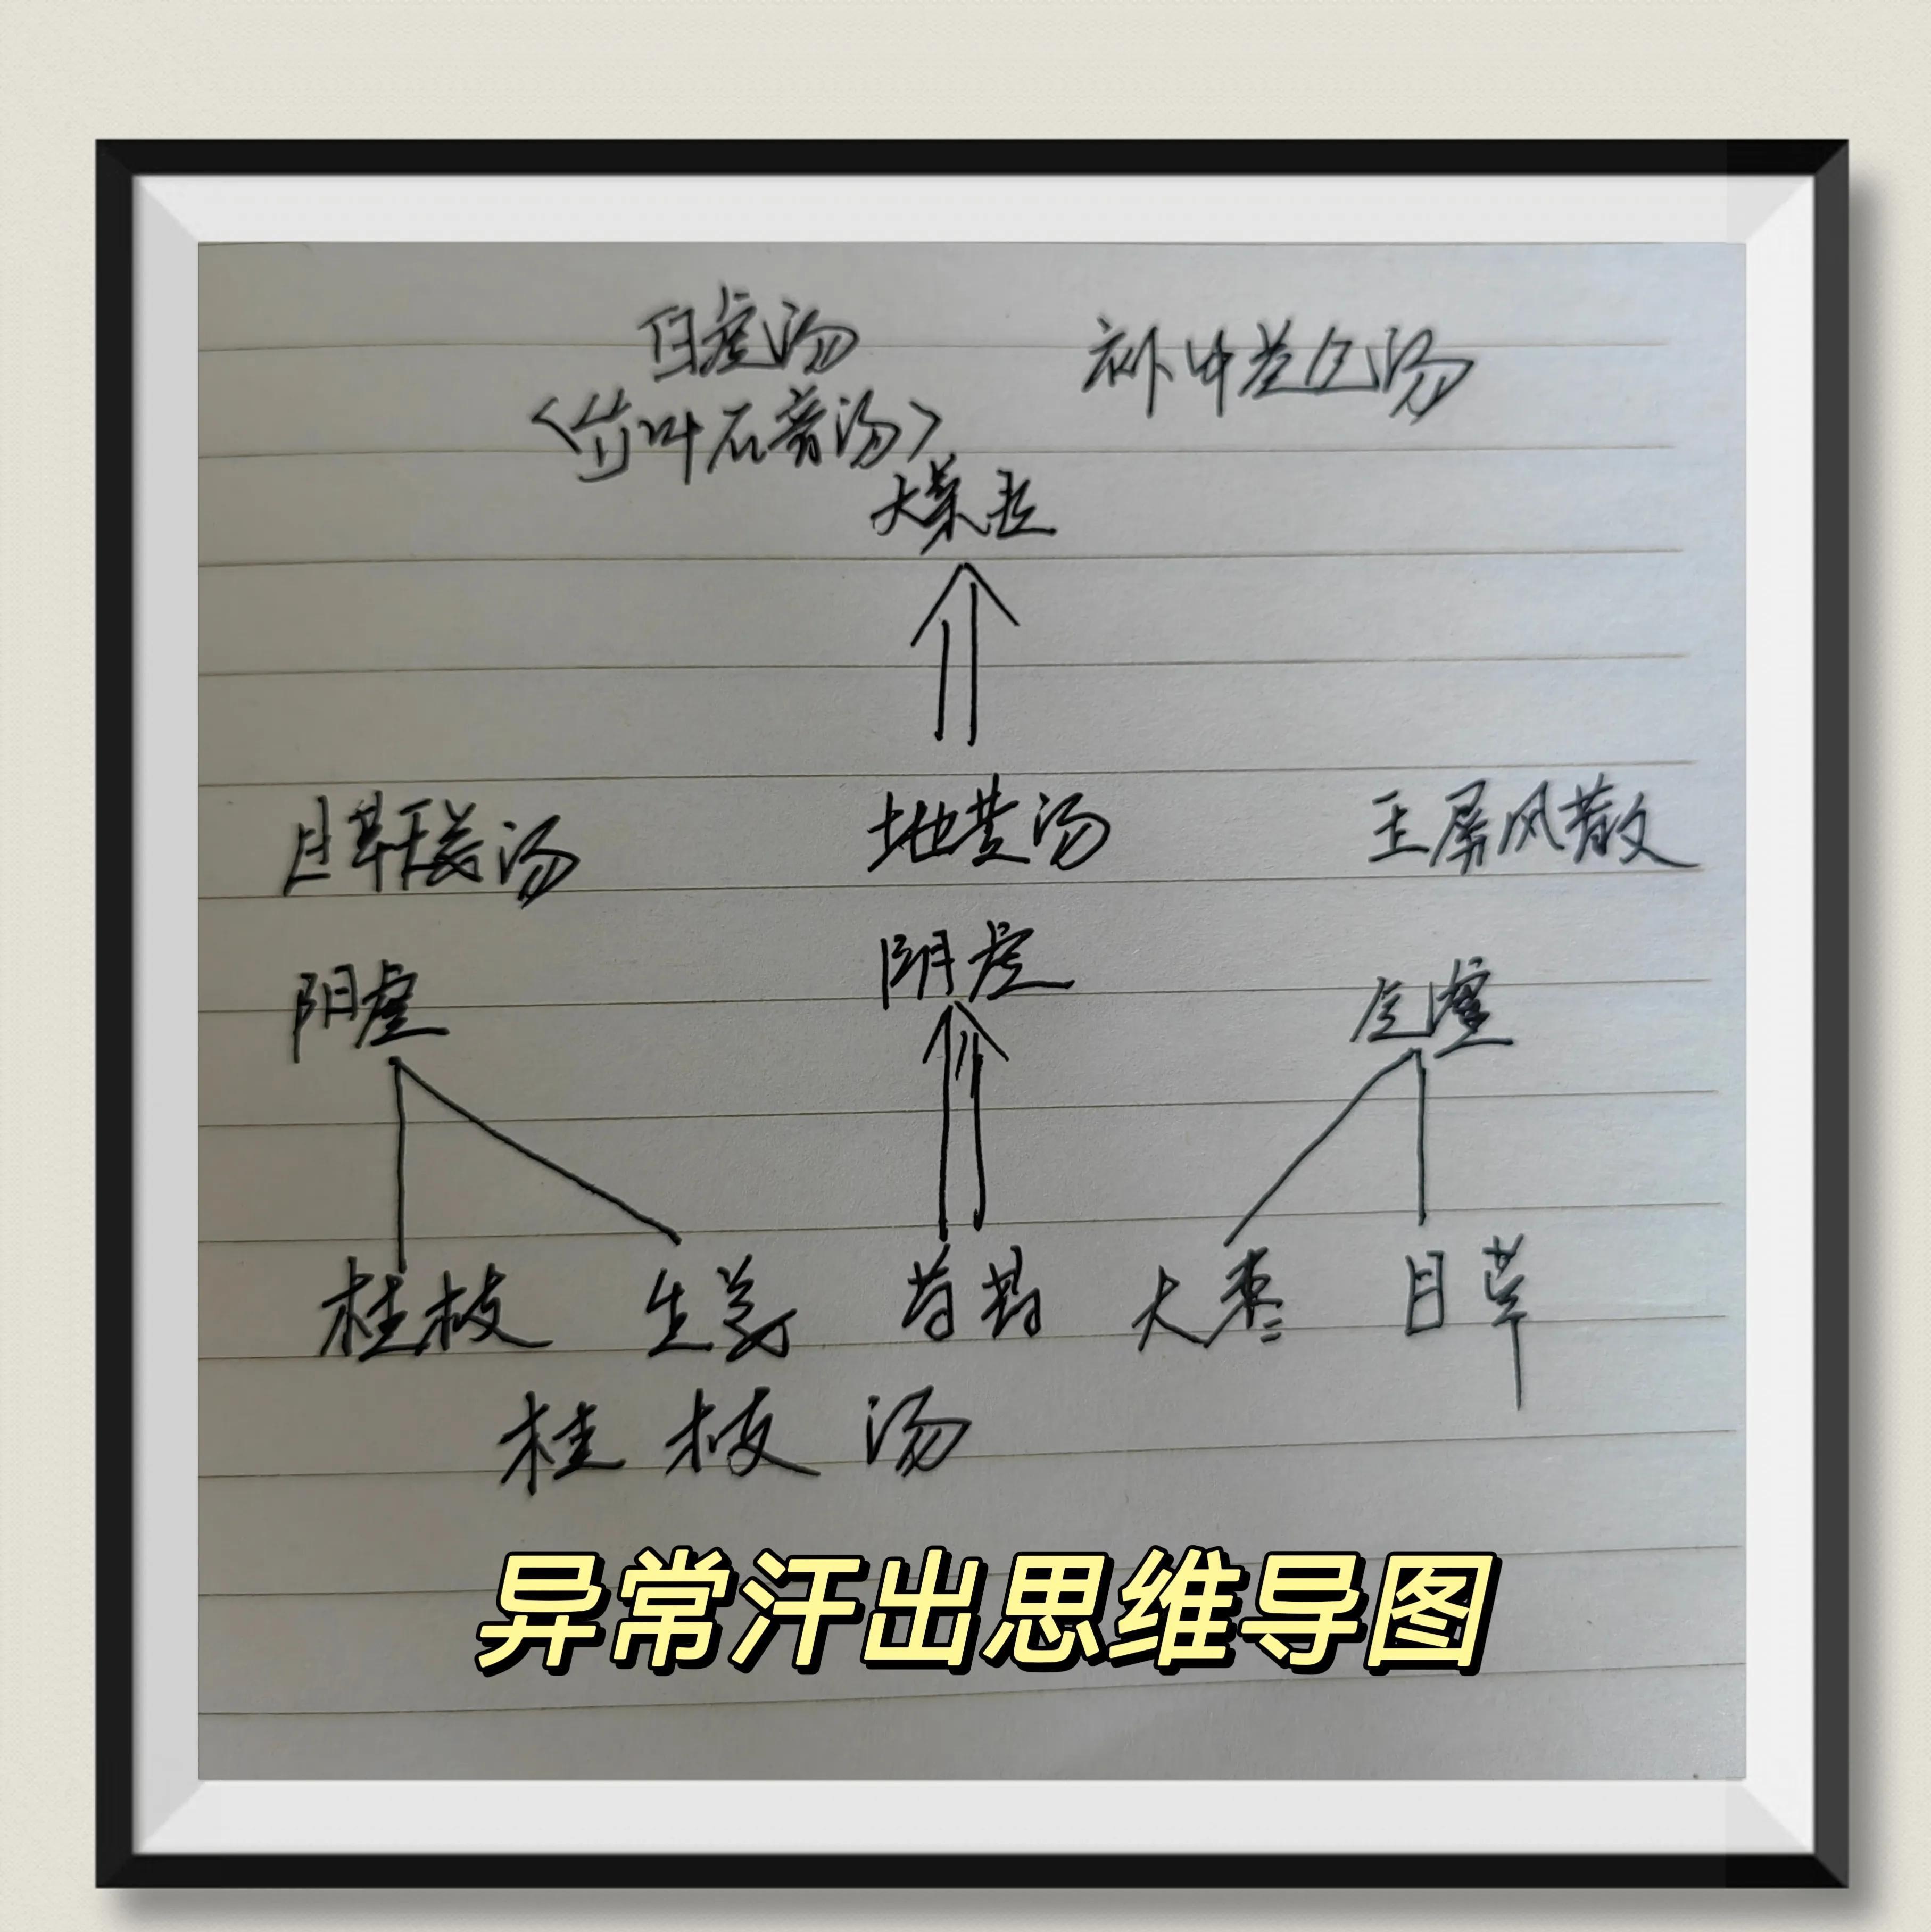 白虎汤
补中益气汤
<竹叶石膏汤>
甘草干姜汤
地黄汤
玉屏风散
阳虚
阴虚
气虚
桂枝 生姜 芍药 大枣 甘草
桂枝汤
异常汗出思维导图